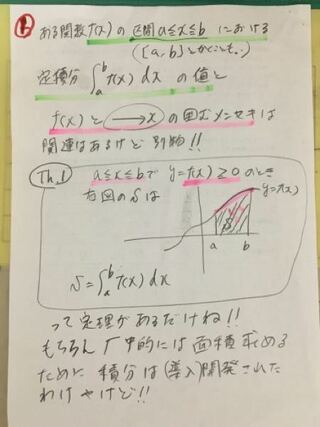 ① ある関数f(x)の区間a≦x≦bにおける
([a,b]とかくことも。)
定積分∫_a^b f(x)dxの値と
f(x)と→xの囲むメンセキは
関連はあるけど別物!!
Th.1 a≦x≦bでy=f(x)≧0のとき
右図のSは
y=f(x)
S
a b
S=∫_a^b f(x)dx
って定理があるだけね!!
もちろん 的には面積求める
ために積分は(導入)開発された
わけやけど!!